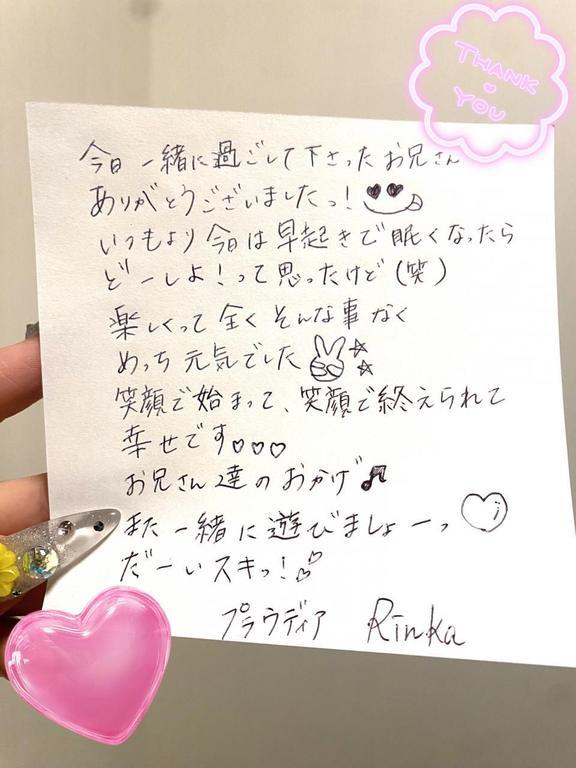 THANK
YOU
今日一緒に過ごして下さったお兄さん
ありがとうございましたっ!
いつもより今日は早起きで眠くなったら
どーしよ!って思ったけど(笑)
楽しくって全くそんな事なく
めっち元気でした
笑顔で始まって、笑顔で終えられて
幸せです♡♡♡
お兄さん達のおかげ♪
また一緒に遊びましょーっ♡
だーいスキっ!
プラウディア Rinka